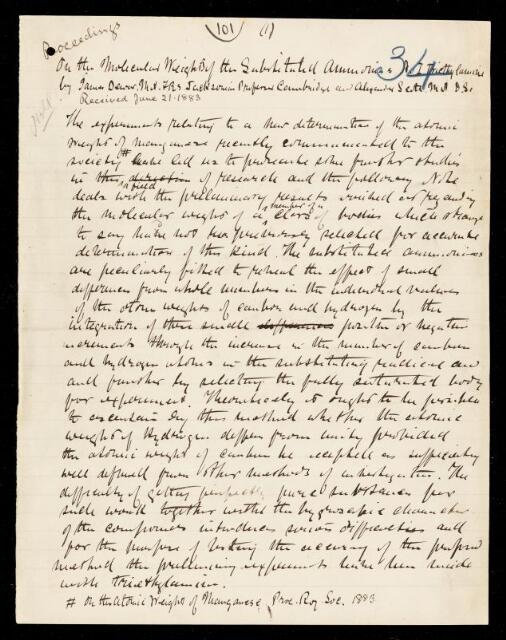 Proceedings
101 (1)
34
On the Molecular Weights of the Substituted Ammonias No 1 Triethylamine
by James Dewar M.A. F.R.S Jacksonian Professor Cambridge and Alexander Scott M.A. D.Sc
Received June 21. 1883
The experiments relating to a new determination of the atomic
weight of manganese recently communicated to the
society # have led us to prosecute some further studies
in this direction a field of research and the following Note
deals with the preliminary results arrived at regarding
the molecular weight of a member of a class of bodies which strange
to say have not been previously selected for accurate
determination of this kind. The substituted ammonias
are peculiarly fitted to reveal the effect of small
differences from whole numbers in the individual values
of the atomic weights of carbon and hydrogen by the
integration of these small differences positive or negative
increments through the increase in the number of carbon
and hydrogen atoms in the substituting radical and
and further by selecting the fully saturated body
for experiment. Theoretically it ought to be possible
to ascertain by this method whether the atomic
weight of Hydrogen differs from unity provided
the atomic weight of carbon be accepted as sufficiently
well defined from other methods of investigation. The
difficulty of getting perfectly pure substances for
such work together with the hygroscopic character
of the compounds introduces serious difficulties and
for the purpose of testing the accuracy of the proposed
method the preliminary experiments have been made
with triethylamine.
# On the Atomic Weight of Manganese, Proc. Roy. Soc. 1883